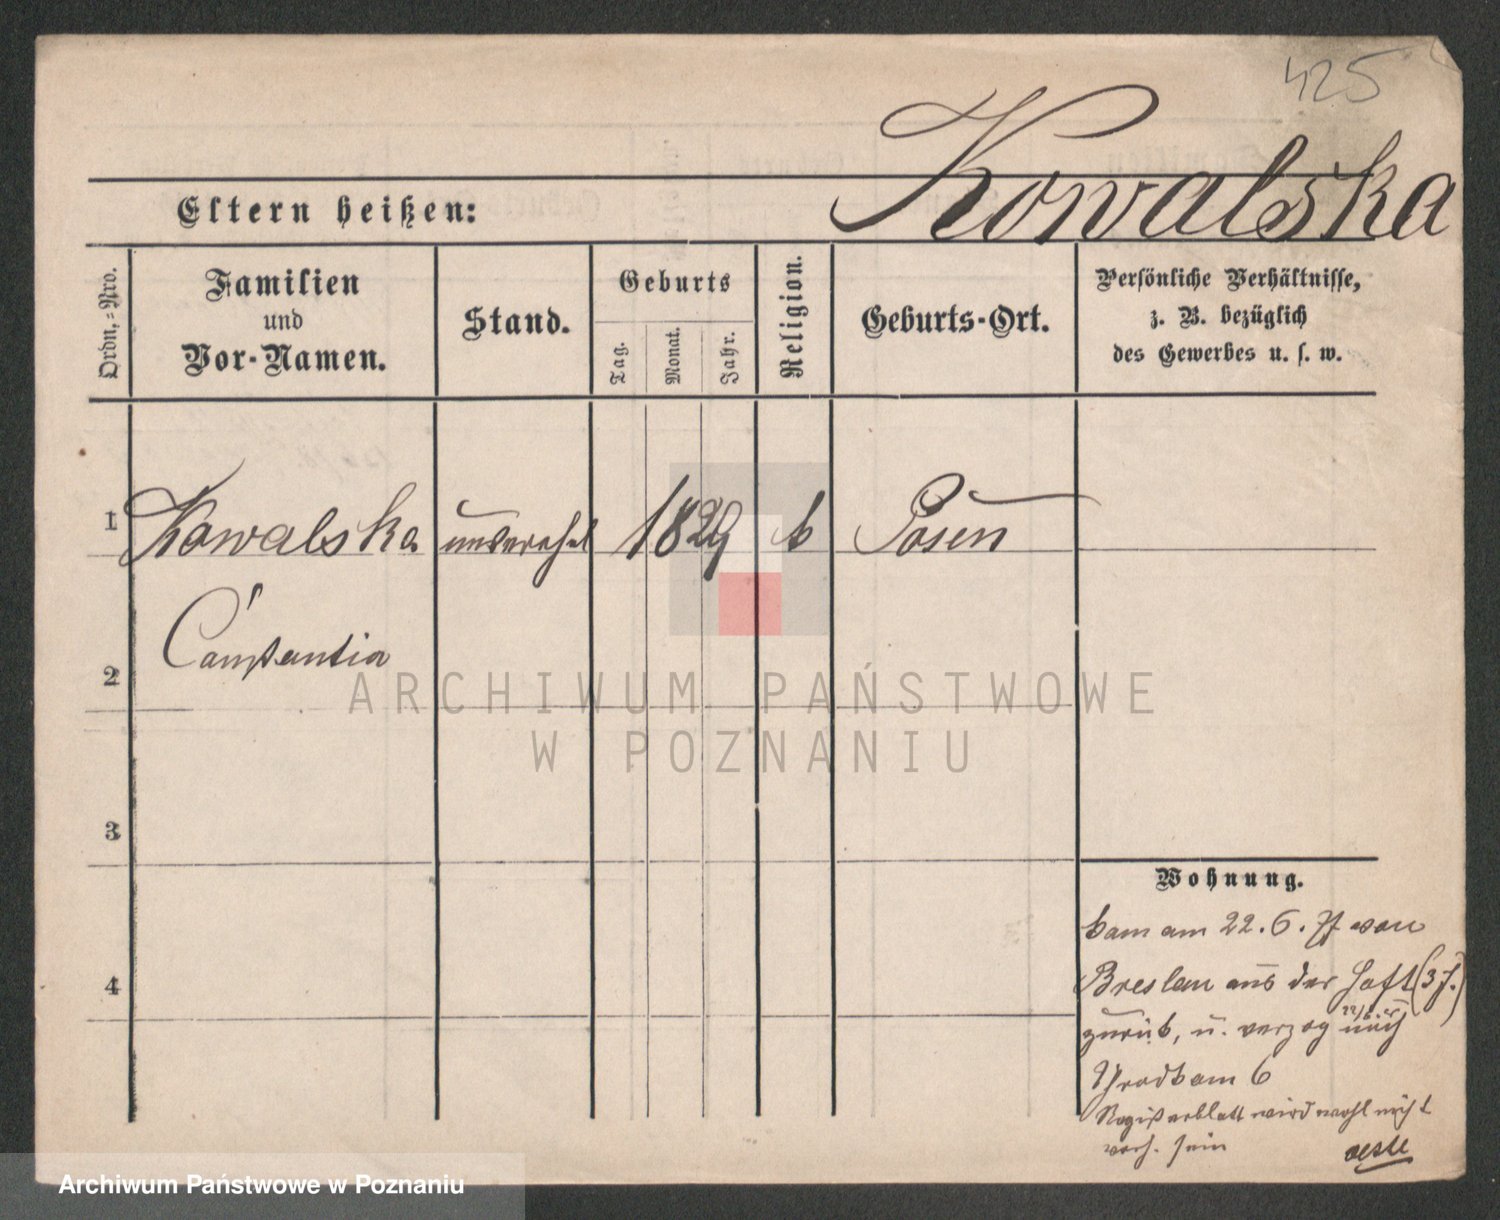 425
Kowalska
Eltern heißen:
Ordn.=Nro.
Familien
und
Vor-Namen.
Stand.
Geburts
Tag.
Monat.
Jahr.
Religion.
Geburts-Ort.
Persönliche Verhältnisse,
z. B. bezüglich
des Gewerbes u. s. w.
1 Kowalska unverehel 1829 k Posen
Constantia
2
3
4
Wohnung.
kam am 22. 6. 77 von
Breslau aus der Haft (3 J.)
zurück, u. verzog nach
am 6
Registerblatt wird wohl nicht
vorh. sein
ARCHIWUM PAŃSTWOWE
W POZNANIU
Archiwum Państwowe w Poznaniu